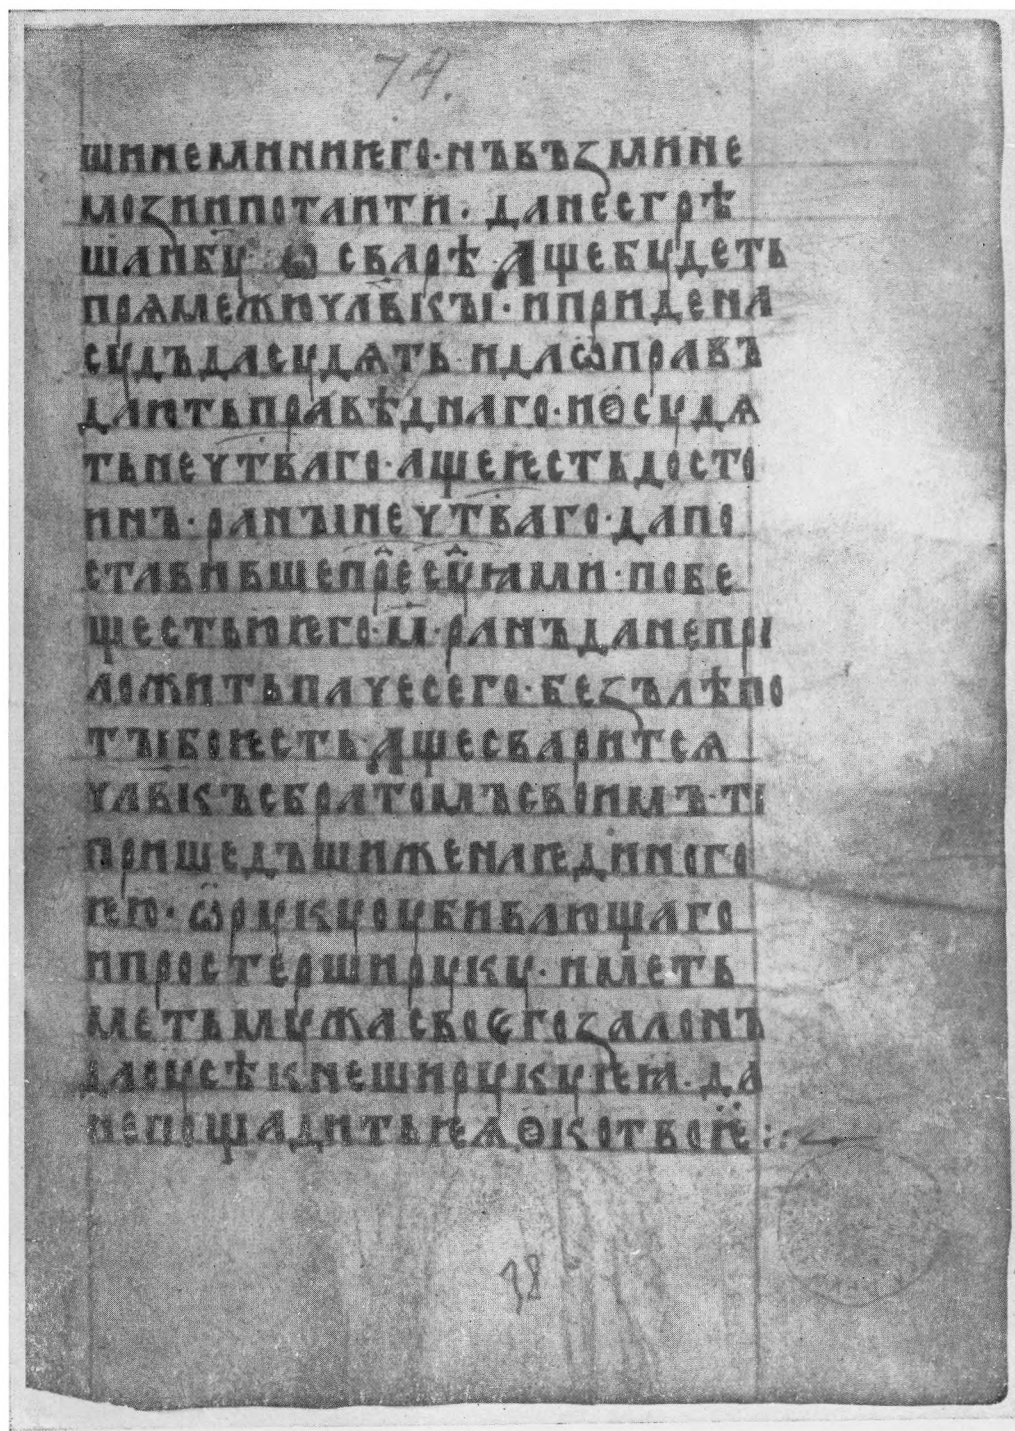 74.
шинеминиѥго·нъвъꙁмине
моꙁиипотаити· данесгрѣ
шаибꙋ ѡ сварѣ Ащебꙋдеть
прѧмежючл҃вкꙑ·ипридена
сꙋдъдасꙋдѧть·идаѡправъ
даютьправѣднаго·иѳсꙋдѧ
тьнечт҃ваго·ащеѥстьдосто
инъ·ранꙑнечт҃ваго·дапо
ставившепрⷣесꙋⷣꙗми·побе
щестьюѥго·м҃·ранъданепрі
ложитьпачесего·беꙁълѣпо
тꙑбоѥсть·Ащесваритсѧ
чл҃вкъсбратомъсвоимъ·ті
пришедъшиженаѥдиного
ѥю·ѿрꙋкꙋоꙋбивающаго
ипростерширꙋкꙋ·иметь
метьмꙋжасвоєгоꙁалонъ
даоꙋсѣкнеширꙋкꙋѥꙗ·да
непощадитьѥѧѳкотвоѥ:·:·
38